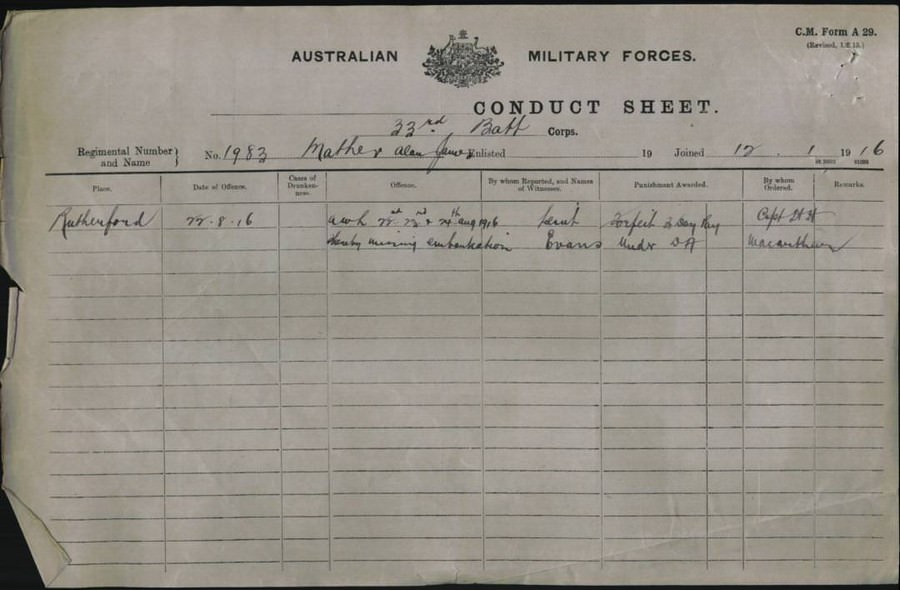 C.M. Form A 29.
(Revised, 1.2.15.)
AUSTRALIAN MILITARY FORCES.
CONDUCT SHEET.
33rd Batt Corps.
Regimental Number and Name } No. 1983 Mather Alan James Enlisted 19 Joined 12 . 1 1916
Place. Date of Offence. Cases of Drunkenness. Offence. By whom Reported, and Names of Witnesses. Punishment Awarded. By whom Ordered. Remarks.
Rutherford 22.8.16 awl 22nd 23rd & 24th aug 1916 Lieut Forfeit 3 Day Pay Capt
thereby missing embarkation Evans Under DA